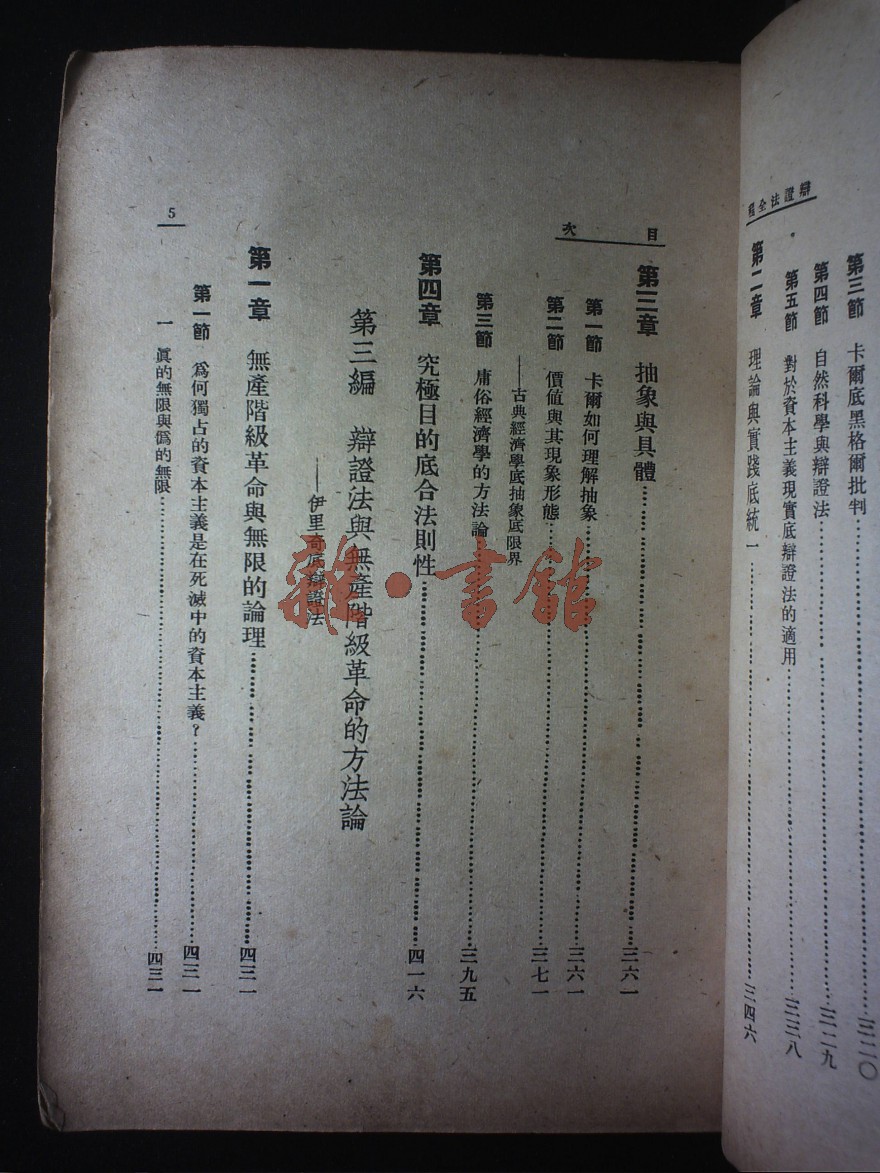 辯證法全程
第三節 卡爾底黑格爾批判……三二〇
第四節 自然科學與辯證法……三二九
第五節 對於資本主義現實底辯證法的適用……三三八
第二章 理論與實踐底統一……三四六
目次
第三章 抽象與具體……三六一
第一節 卡爾如何理解抽象……三六一
第二節 價値與其現象形態……三七一
——古典經濟學底抽象底限界
第三節 庸俗經濟學的方法論……三九五
第四章 究極目的底合法則性……四一六
第三編 辯證法與無產階級革命的方法論
——伊里奇底辯證法
第一章 無產階級革命與無限的論理……四三一
第一節 爲何獨占的資本主義是在死滅中的資本主義?……四三一
一 眞的無限與僞的無限……四三一
5
雜·書館